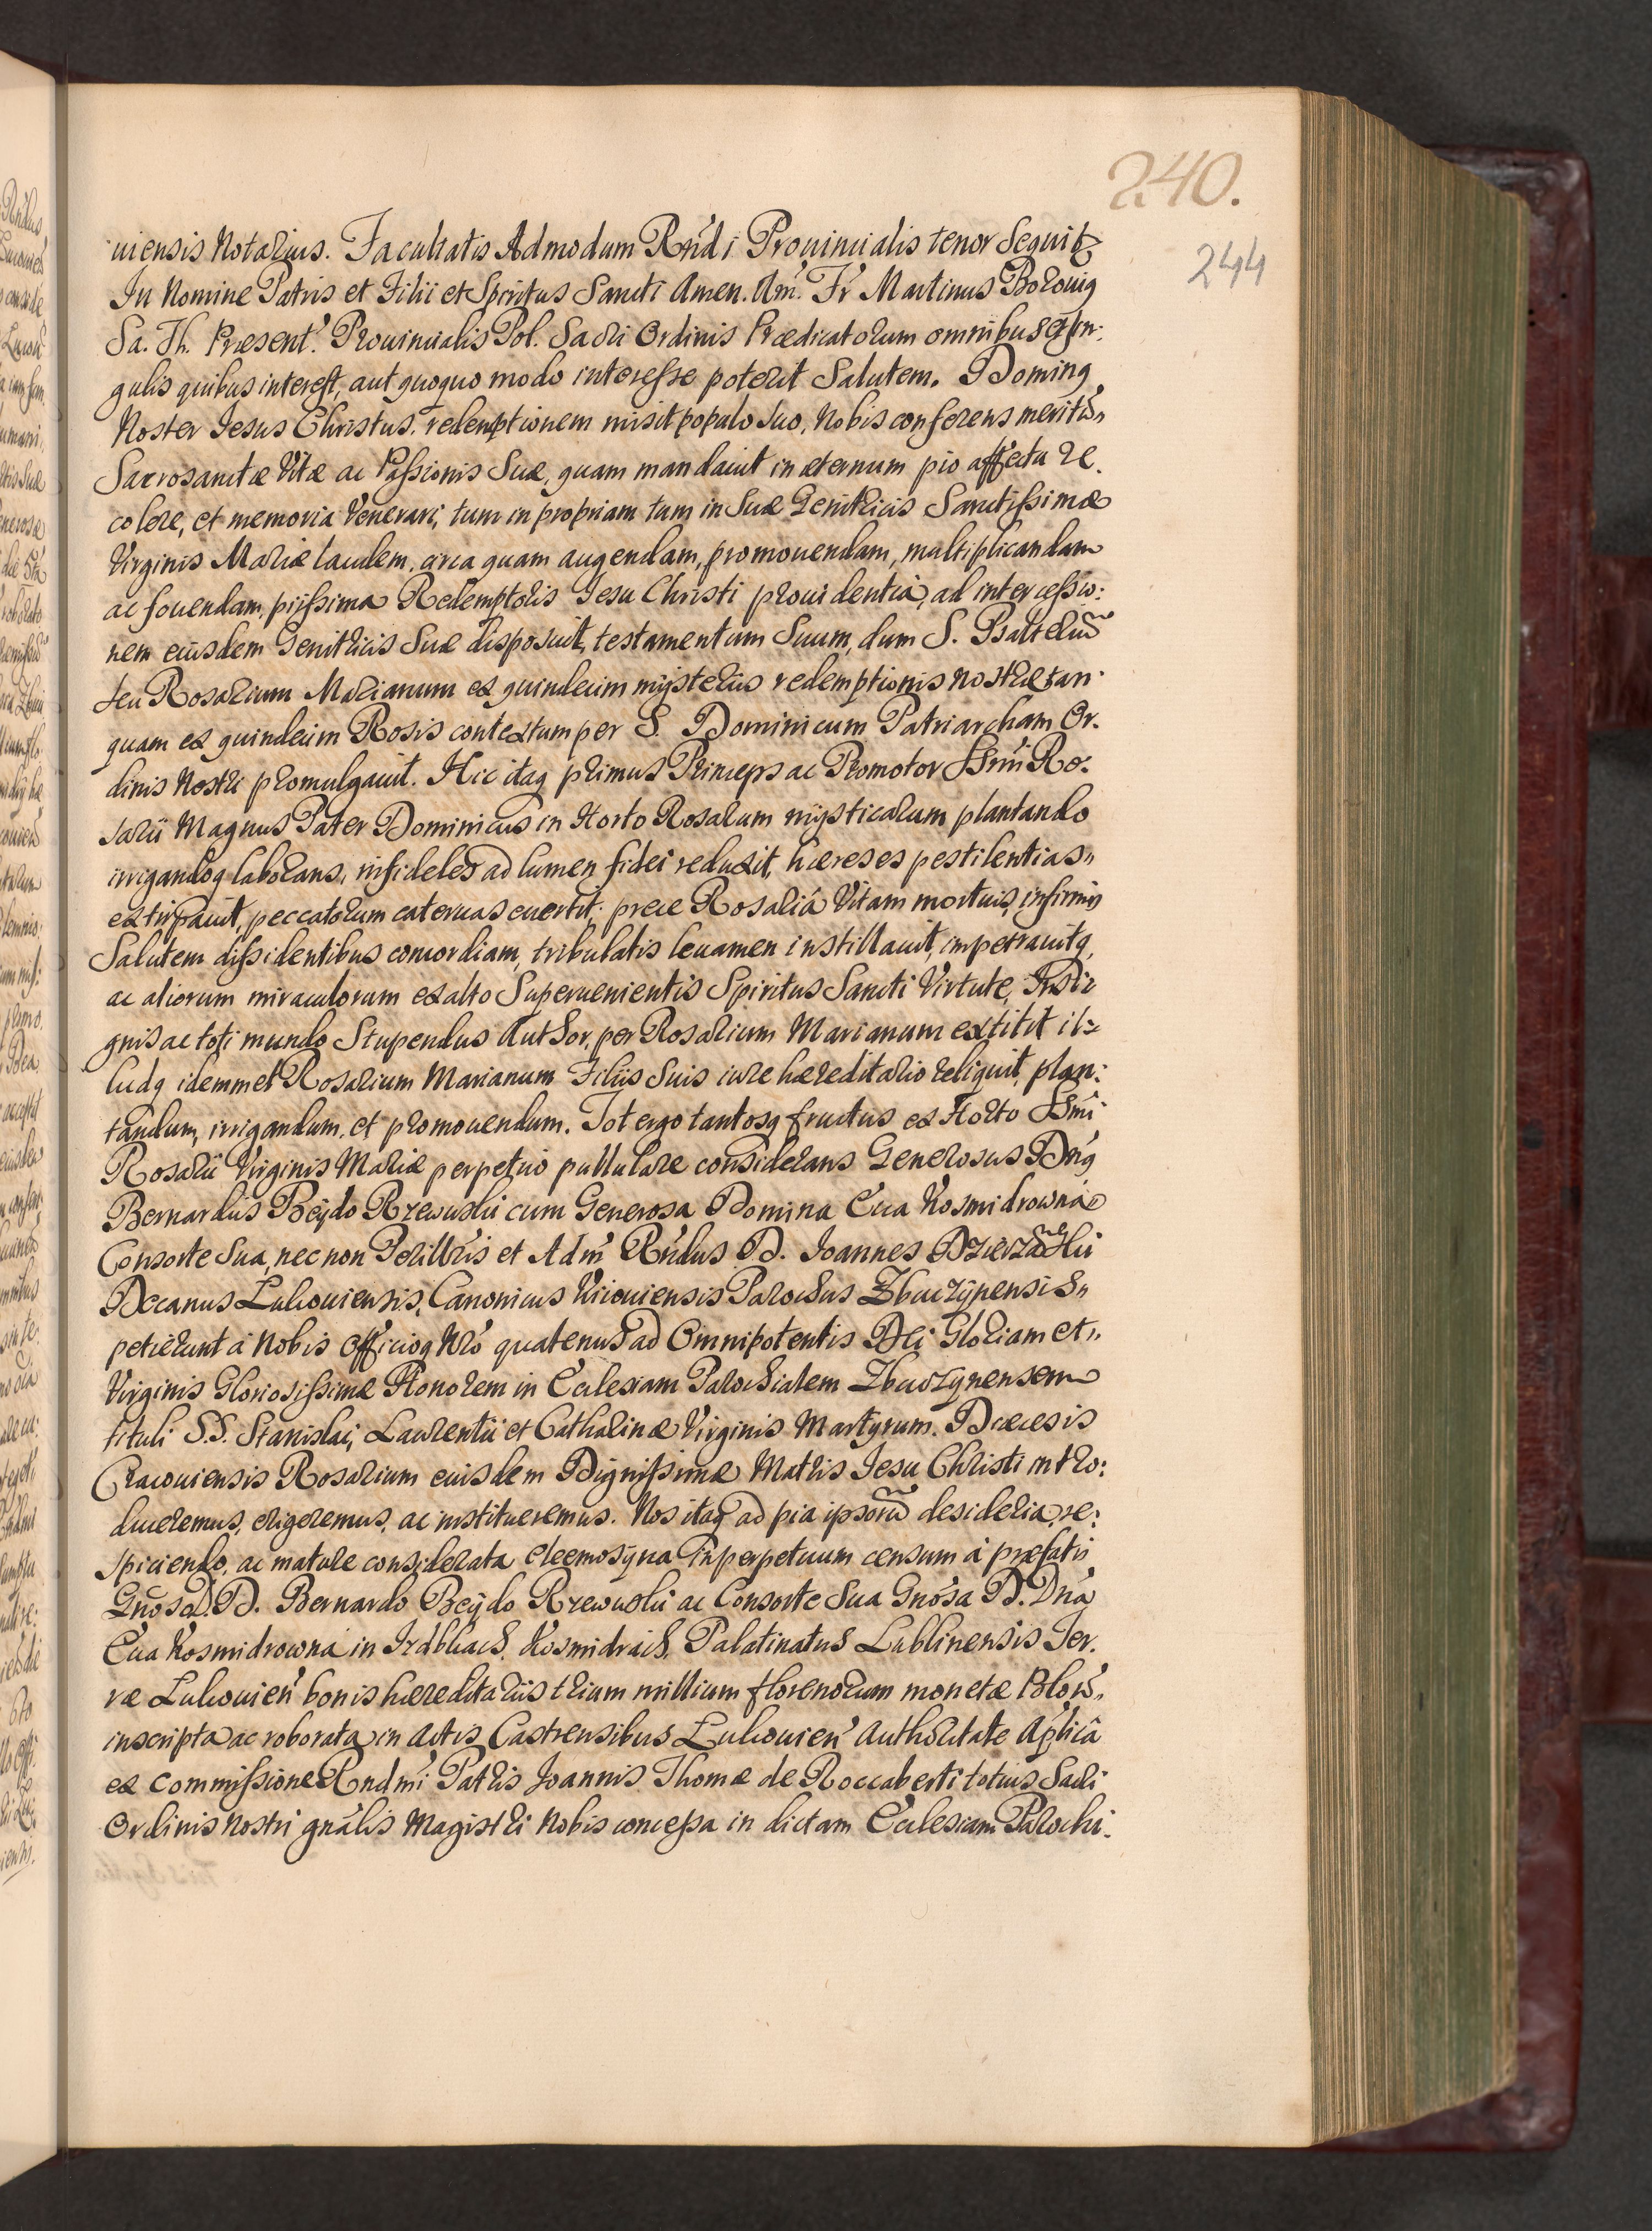 240.
244
uiensis Notarius. Facultatis Admodum Rńdi Prouincialis tenor Sequitz
In Nomine Patris et Filii et Spiritus Sancti Amen. Am. Fr Martinus Borouig
Sa. Th. Præsent. Prouincialis Pol. Sacri Ordinis Prædicatorum omnibus et sin:
gulis quibus interest, aut quoquo modo interesse poterit Salutem. Doming
Noster Iesus Christus redemptionem misit populo suo, Nobis conferens meritũ
Sacrosanctæ Vitæ ac Passionis Suæ, quam mandauit in æternum pio affectu re.
colere, et memoria Venerari, tum in propriam tum in Suæ Genitricis Sanctissimæ
Virginis Mariæ laudem, circa quam augendam, promouendam, multiplicandam
ac fouendam, piissima Redemptoris Iesu Christi prouidentia, ad intercessio:
nem eiusdem Genitricis Suæ disposuit, testamentum Suum, dum S. Psalteriũ
seu Rosarium Marianum ex quindecim mysteriis redemptionis nostræ tan:
quam ex quindecim Rosis contextum per S. Dominicum Patriarcham Or.
dinis Nostri promulgauit. Hic itaq primus Princeps ac Promotor SSmi Ro:
sarii Magnus Pater Dominicus in Horto Rosarum mysticarum plantando
irrigandoq laborans, infideles ad lumen fidei reduxit, hæreses pestilentias
extirpauit, peccatorum cateruas euertit, prece Rosaria Vitam mortuis, infirmis
Salutem dissidentibus concordiam, tribulatis leuamen instillauit, impetrauitq,
ac aliorum miraculorum ex alto Superuenientis Spiritus Sancti Virtute, Insi:
gnis ac toti mundo Stupendus Author, per Rosarium Marianum extitit il:
ludq idemmet Rosarium Marianum Filiis Suis iure hæreditario reliquit, plan:
tandum, irrigandum, et promouendum. Tot ergo tantosq fructus ex Horto SSmi
Rosarii Virginis Mariæ perpetuo pullulare considerans Generosus Dńg
Bernardus Beydo Rzewuski cum Generosa Domina Eua Kosmidrowna
Consorte Sua, nec non Perillris et Adm Rńdus D. Ioannes Dzierzański
Decanus Lukouiensis, Canonicus Kiiouiensis Parochus Zbuczynensis
petierunt à Nobis officioq Nro quatenus ad Omnipotentis Dei Gloriam et
Virginis Gloriosissimæ Honorem in Ecclesiam Parochialem Zbuczynensem
tituli S.S. Stanislai, Laurentii et Catharinæ Virginis Martyrum. Diœcesis
Cracouiensis Rosarium eiusdem Dignissimæ Matris Iesu Christi intro:
duceremus, erigeremus, ac institueremus. Nos itaq ad pia ipsorũ desideria re:
spiciendo, ac mature considerata eleemosyna in perpetuum censum à præfatis
Gnoso D. D. Bernardo Beydo Rzewuski ac Consorte Sua Gnosa D. Dńa
Eua Kosmidrowna in Izdbkach Kosmidrach Palatinatus Lublinensis Ter.
ræ Lukouień bonis hæreditariis trium millium florenorum monetæ Polon,
inscripta ac roborata in Actis Castrensibus Lukouień Authoritate Aplica
ex Commissione Rndmi Patris Ioannis Thomæ de Roccaberti totius Sacri
Ordinis Nostri gnalis Magistri Nobis concessa in dictam Ecclesiam Parochi: